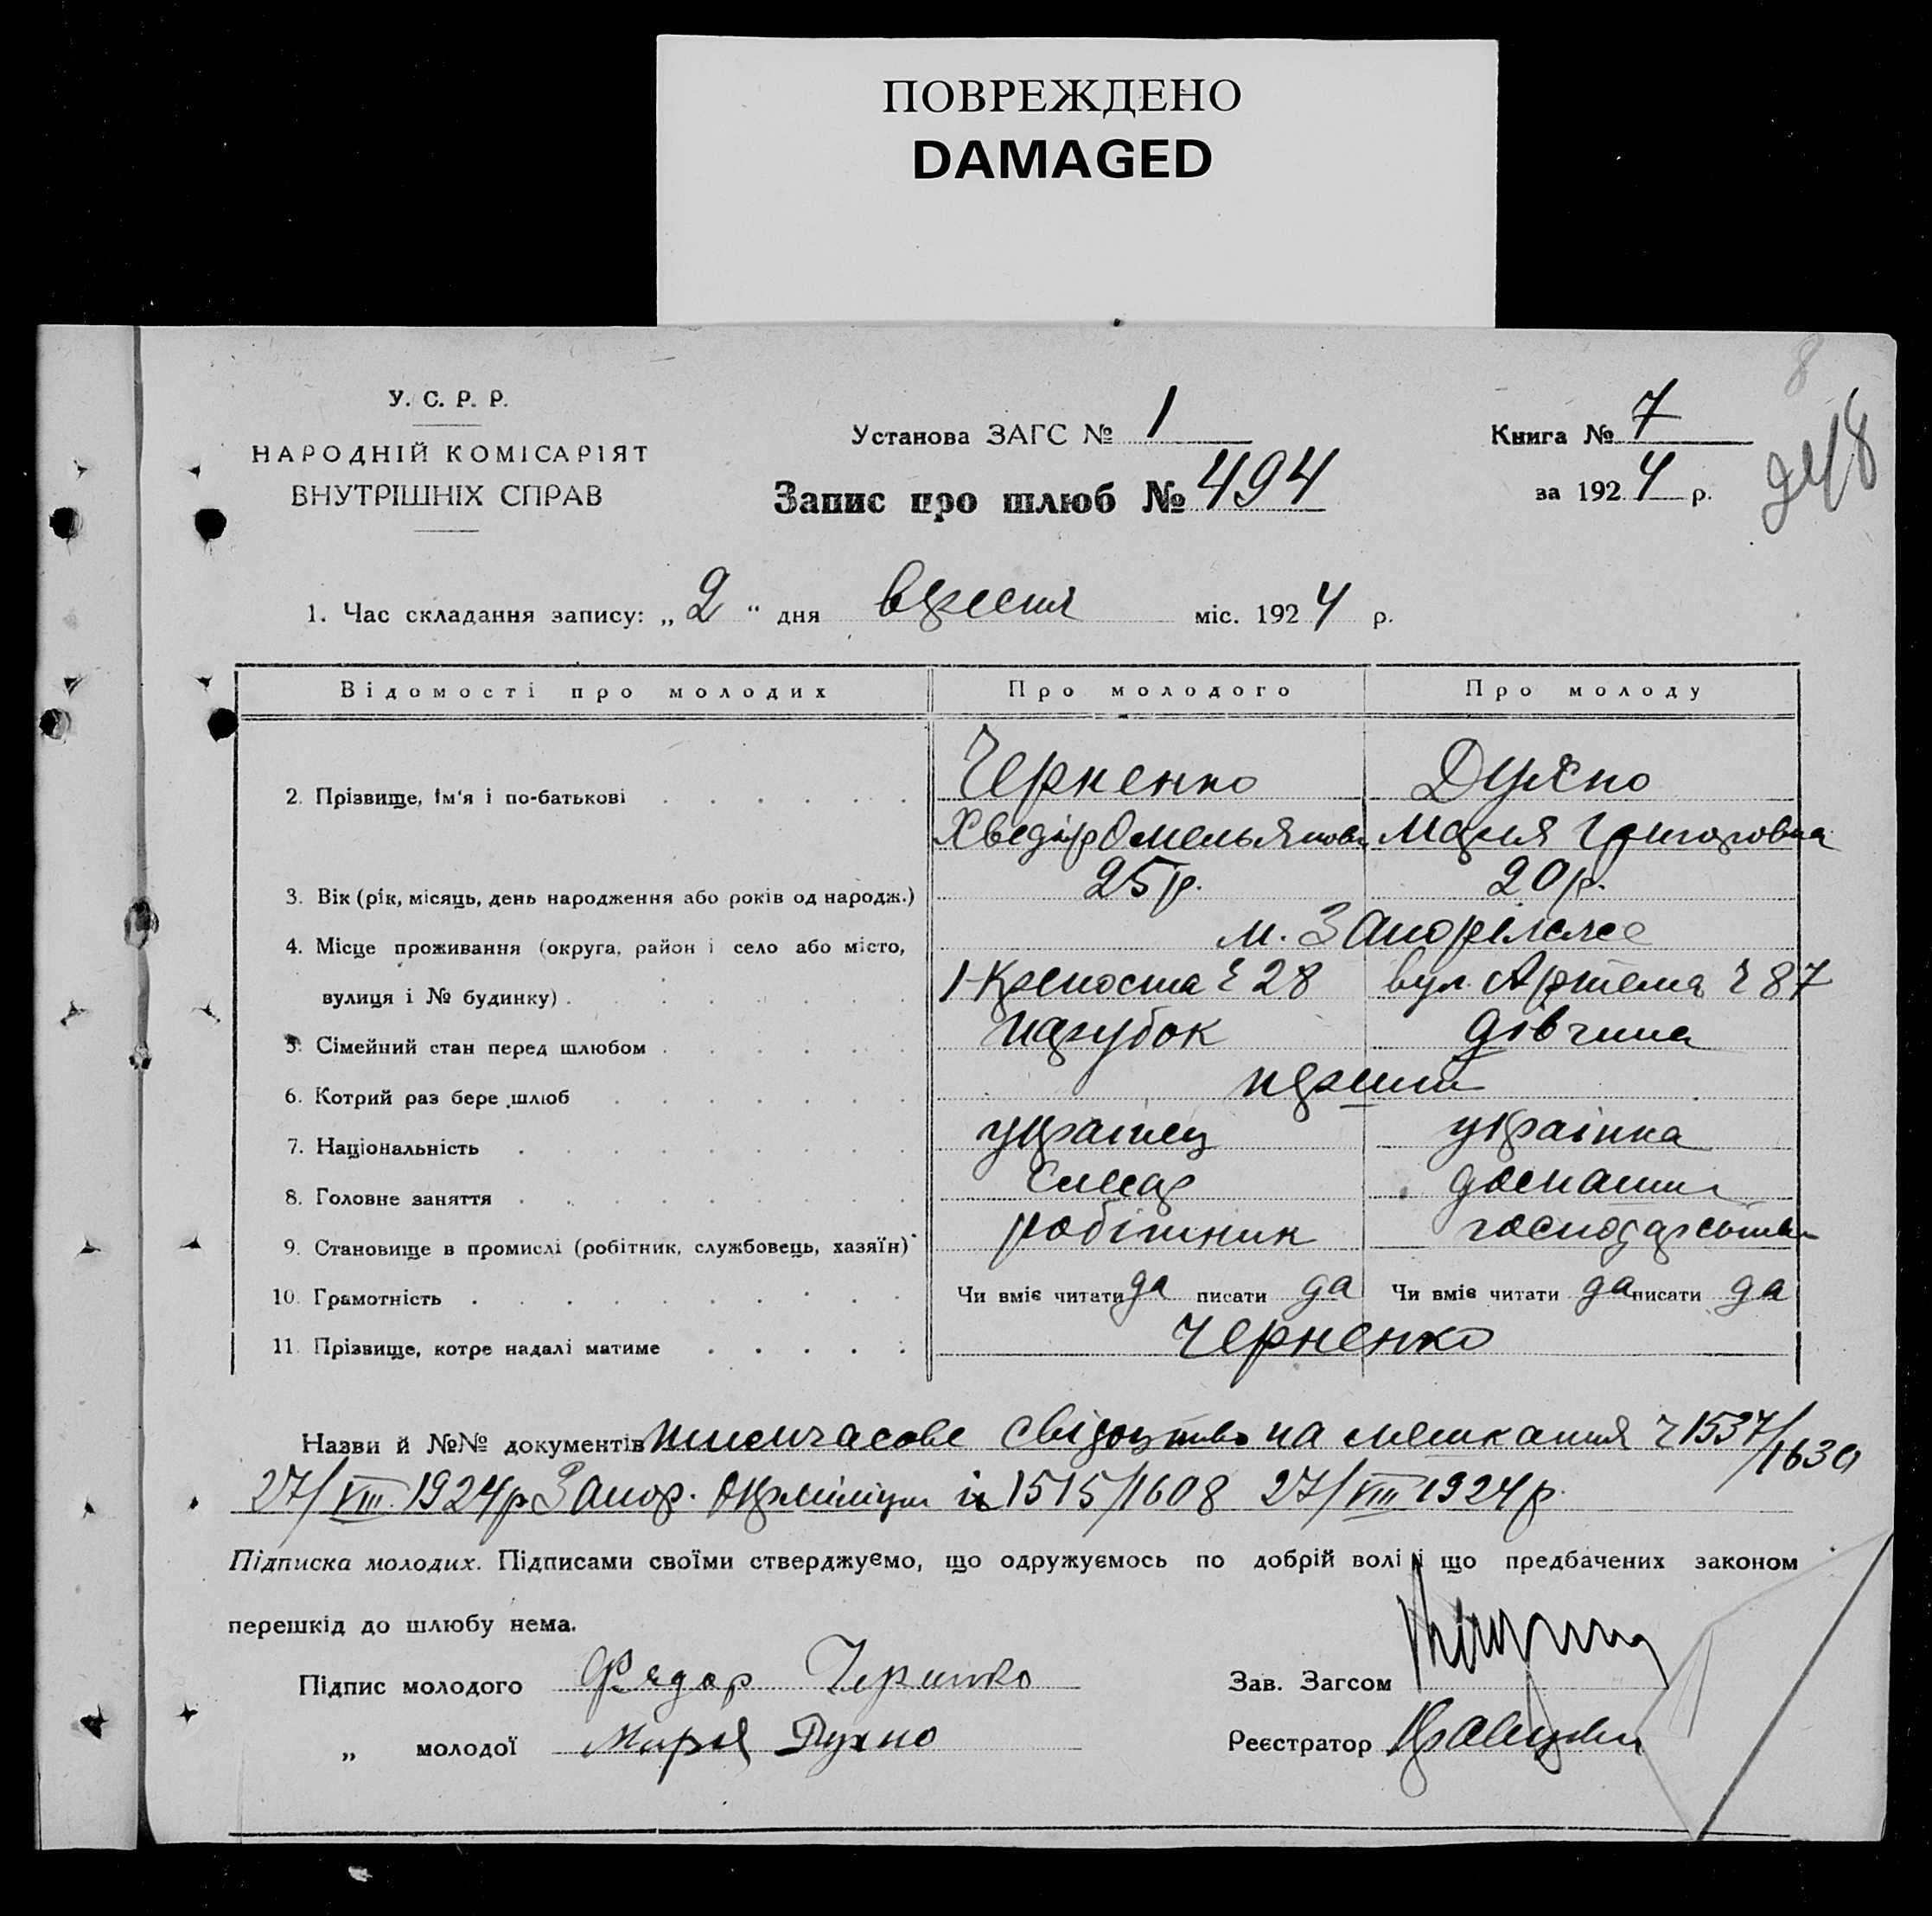 ПОВРЕЖДЕНО
DAMAGED
8
У. С. Р. Р.
НАРОДНІЙ КОМІСАРІЯТ
ВНУТРІШНІХ СПРАВ
Установа ЗАГС № 1
Запис про шлюб № 494
Книга № 7
за 1924 р.
1. Час складання запису: „2“ дня вересня міс. 1924 р.
Відомості про молодих Про молодого Про молоду
2. Прізвище, Ім'я і по-батькові Черненко Духно
Хведір Омельянов Мария Григоровна
3. Вік (рік, місяць, день народження або років од народж.) 25 р. 20 р.
4. Місце проживання (округа, район і село або місто, м. Запоріжжє
вулиця і № будинку) 1-Крепостна ч 28 вул. Артема ч 87
5. Сімейний стан перед шлюбом парубок дівчина
6. Котрий раз бере шлюб перший
7. Національність українец українка
8. Головне заняття Слюсар домашнє
9. Становище в промислі (робітник, службовець, хазяїн) робітник господарство
10. Грамотність Чи вміє читати да писати да Чи вміє читати да писати да
11. Прізвище, котре надалі матиме Черненко
Назви й №№ документів тимчасове свідоцтво на мешкання ч 1537/1630
27/VIII 1924 р Запор. Окрміліции 1515/1608 27/VIII 1924 р.
Підписка молодих. Підписами своїми стверджуємо, що одружуємось по добрій волі і що предбачених законом
перешкід до шлюбу нема.
Підпис молодого Федор Черненко
Зав. Загсом
„ молодої Мария Духно
Реєстратор